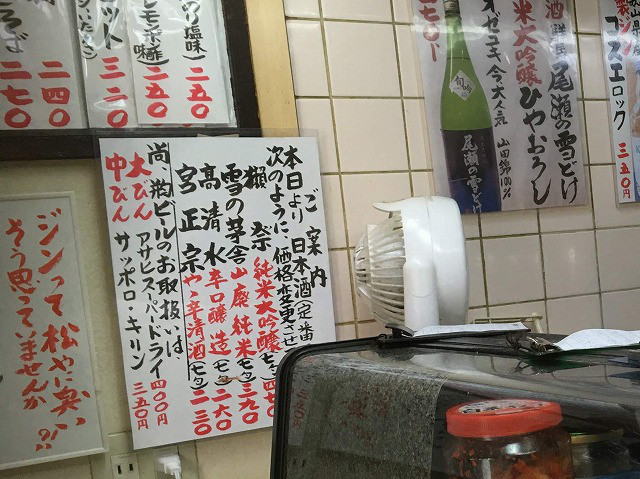 ご案内
本日より日本酒(定番
次のように、価格変更させ
獺祭 純米大吟醸(七夕 四七〇
雪の茅舎 山廃純米(七夕 三九〇
高清水 辛口醸造(七夕 二六〇
宮正宗 やゝ辛清酒(七夕 二三〇
尚、瓶ビールのお取扱いは、
大びん アサヒスーパードライ 四〇〇円
中びん サッポロ・キリン 三五〇円
ジンって松やに臭い
そう思っていませんか
?!
尾瀬の雪どけ
ひやおろし
純米大吟醸
山田錦100%
イチゼキ今大人気
旬吟
尾瀬の雪どけ
三五〇円
塩味)
二五〇
レモンポン酢)
二五〇
三二〇
二四〇
二七〇